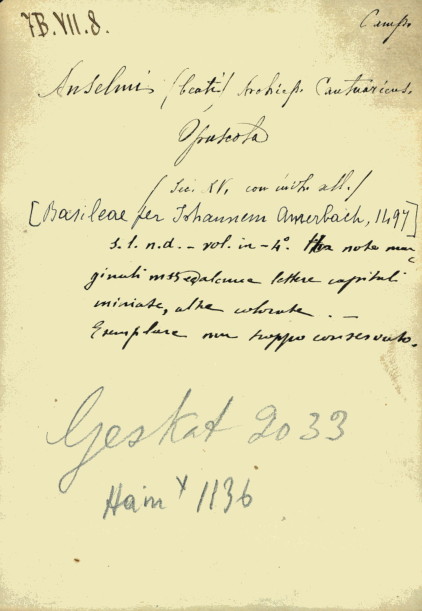 7B.VII.8.
Anselmi (beati) Archiep. Cantuariens.
Opuscola
(Sec. XV. con inth. all.)
[Basileae per Johannem Amerbach, 1497]
s. l. n. d. – vol. in – 4°. Ha note mar
ginali mss ed alcune lettere capitali
miniate, altre colorate. –
Esemplare non troppo conservato.
GesKat 2033
Hain x 1136